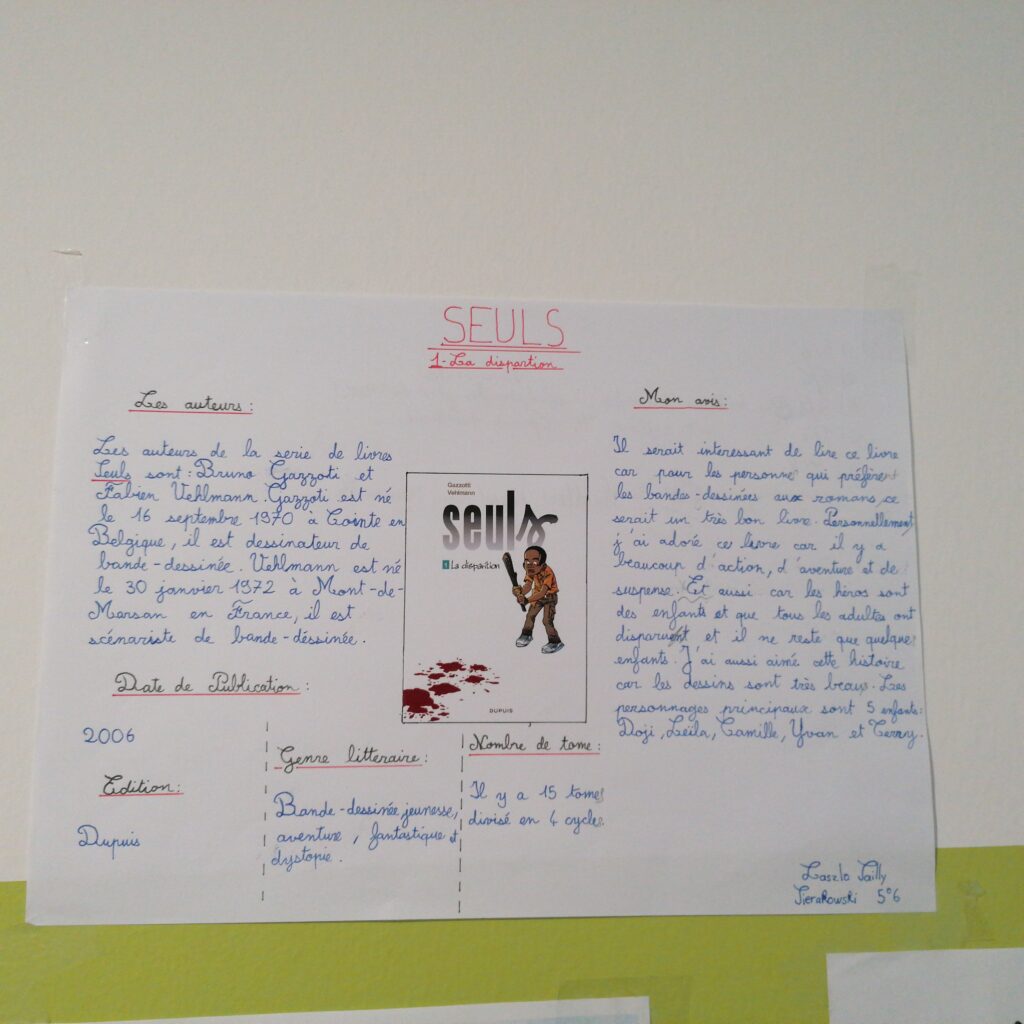 SEULS
1-La dispartion
Les auteurs :
Les auteurs de la serie de livres
Seuls sont : Bruno Gazzoti et
Fabien Vehlmann. Gazzoti est né
le 16 septembre 1970 à Cointe en
Belgique, il est dessinateur de
bande-dessinée. Vehlmann est né
le 30 janvier 1972 à Mont-de-
Marsan en France, il est
scénariste de bande-déssinée.
Date de Publication :
2006
Edition :
Dupuis
Gazzotti
Vehlmann
seuls
1 La disparition
DUPUIS
Genre litteraire :
Bande-dessinée jeunesse,
aventure, fantastique et
dystopie.
Nombre de tome :
Il y a 15 tomes
divisé en 4 cycles.
Mon avis :
Il serait interessant de lire ce livre
car pour les personnes qui préfèrent
les bandes-dessinées aux romans ce
serait un très bon livre. Personnellement,
j'ai adoré ce livre car il y a
beaucoup d'action, d'aventure et de
suspense. Et aussi car les héros sont
des enfants et que tous les adultes ont
disparuent et il ne reste que quelques
enfants. J'ai aussi aimé cette histoire
car les dessins sont très beaux. Les
personnages principaux sont 5 enfants :
Doji, Leïla, Camille, Yvan et Terry.
Laszlo Tailly
Sierakowski 5°6